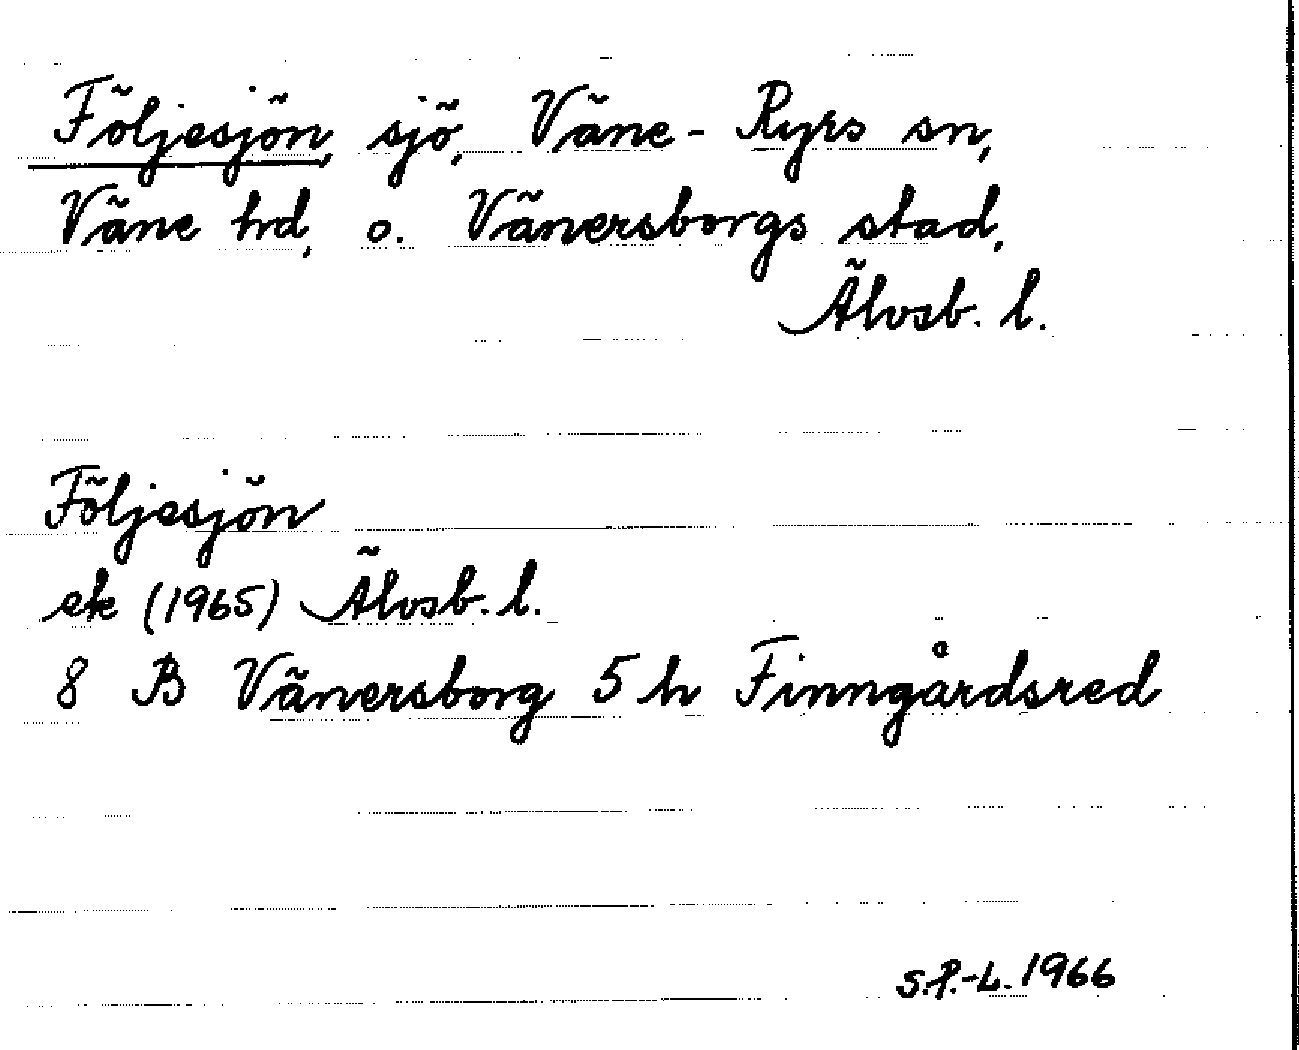 Följesjön, sjö, Väne-Ryrs sn,
Väne hd, o. Vänersborgs stad,
Älvsb. l.
Följesjön
ek (1965) Älvsb. l.
8 B Vänersborg 5 h Finngårdsred
S.P.-L. 1966